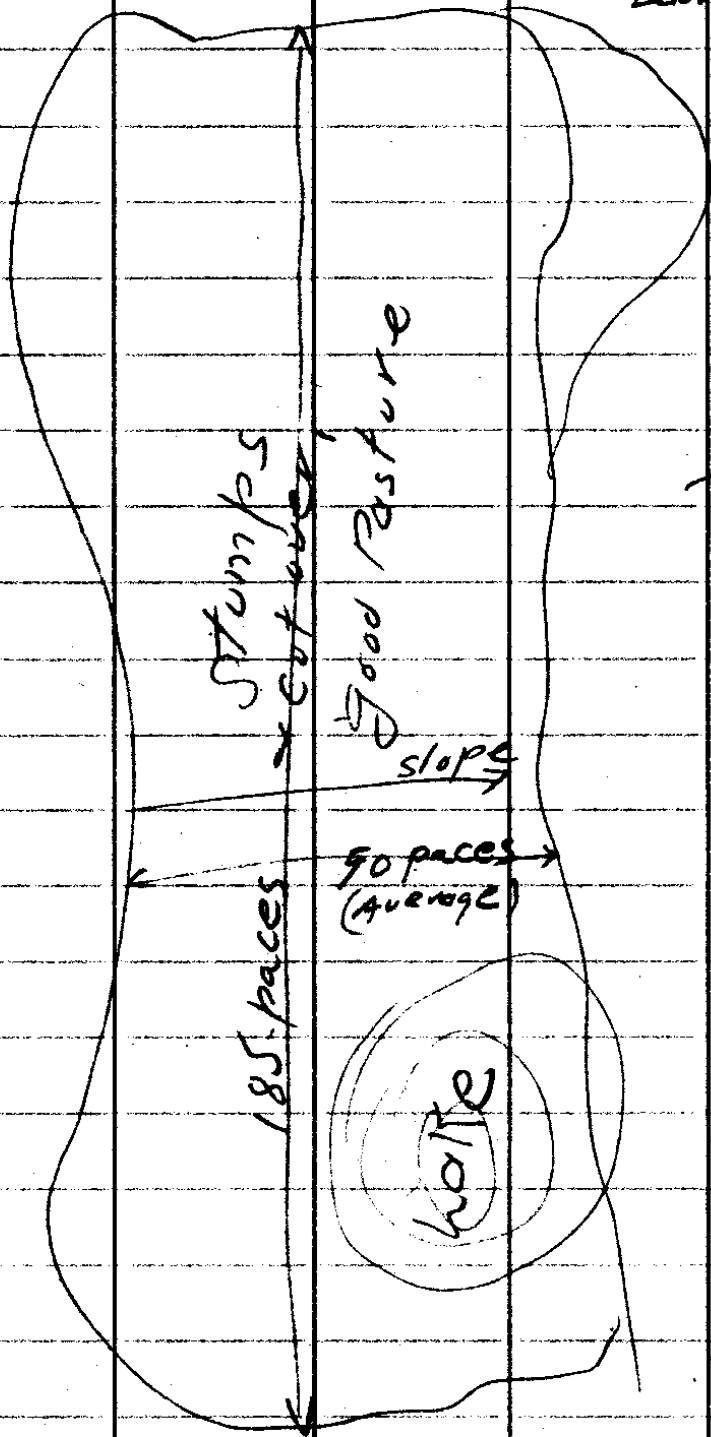 Stumps
cut over
Good Pasture
slope
90 paces
(Average)
185 paces
hole